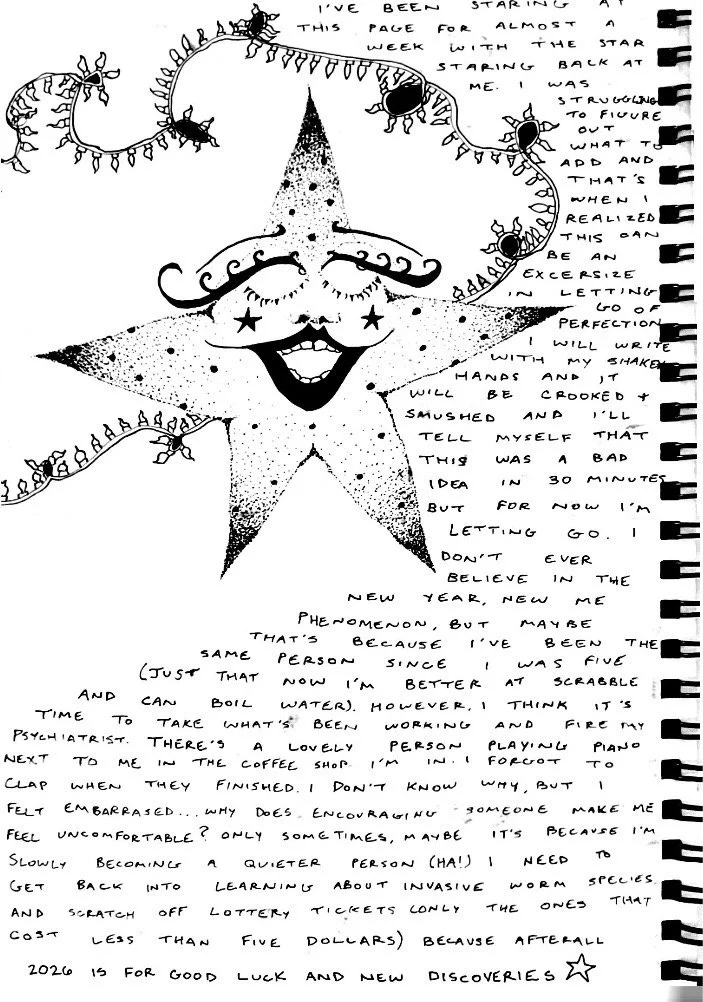 I'VE BEEN STARING AT
THIS PAGE FOR ALMOST A
WEEK WITH THE STAR
STARING BACK AT
ME. I WAS
STRUGGLING
TO FIGURE
OUT
WHAT TO
ADD AND
THAT'S
WHEN I
REALIZED
THIS CAN
BE AN
EXCERSIZE
IN LETTING
GO OF
PERFECTION
I WILL WRITE
WITH MY SHAKEY
HANDS AND IT
WILL BE CROOKED +
SMUSHED AND I'LL
TELL MYSELF THAT
THIS WAS A BAD
IDEA IN 30 MINUTES
BUT FOR NOW I'M
LETTING GO. I
DON'T EVER
BELIEVE IN THE
NEW YEAR, NEW ME
PHENOMENON, BUT MAYBE
THAT'S BECAUSE I'VE BEEN THE
SAME PERSON SINCE I WAS FIVE
(JUST THAT NOW I'M BETTER AT SCRABBLE
AND CAN BOIL WATER). HOWEVER, I THINK IT'S
TIME TO TAKE WHAT'S BEEN WORKING AND FIRE MY
PSYCHIATRIST. THERE'S A LOVELY PERSON PLAYING PIANO
NEXT TO ME IN THE COFFEE SHOP I'M IN. I FORGOT TO
CLAP WHEN THEY FINISHED. I DON'T KNOW WHY, BUT I
FELT EMBARRASED... WHY DOES ENCOURAGING SOMEONE MAKE ME
FEEL UNCOMFORTABLE? ONLY SOMETIMES, MAYBE IT'S BECAUSE I'M
SLOWLY BECOMING A QUIETER PERSON (HA!) I NEED TO
GET BACK INTO LEARNING ABOUT INVASIVE WORM SPECIES
AND SCRATCH OFF LOTTERY TICKETS (ONLY THE ONES THAT
COST LESS THAN FIVE DOLLARS) BECAUSE AFTERALL
2026 IS FOR GOOD LUCK AND NEW DISCOVERIES